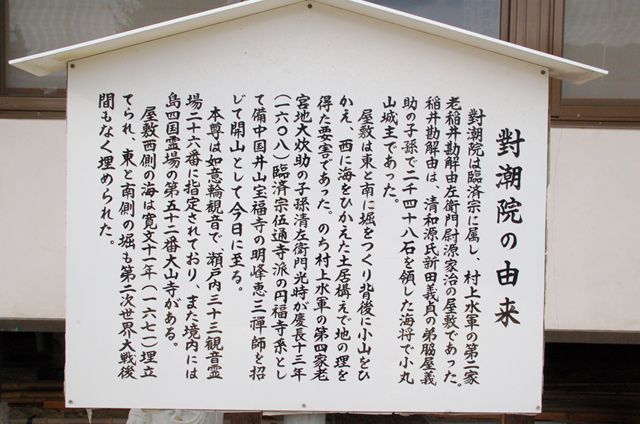 對潮院の由来
對潮院は臨済宗に属し、村上水軍の第二家
老稲井勘解由左衛門尉源家治の屋敷であった。
稲井勘解由は、清和源氏新田義貞の弟脇屋義
助の子孫で二千四十八石を領した海将で小丸
山城主であった。
屋敷は東と南に堀をつくり背後に小山をひ
かえ、西に海をひかえた土居構えで地の理を
得た要害であった。のち村上水軍の第四家老
宮地大炊助の子孫清左衛門光時が慶長十三年
(一六〇八)臨済宗仏通寺派の円福寺系とし
て備中国井山宝福寺の明峰恵三禅師を招
じて開山として今日に至る。
本尊は如意輪観音で、瀬戸内三十三観音霊
場二十六番に指定されており、また境内には
島四国霊場の第五十二番大山寺がある。
屋敷西側の海は寛文十一年(一六七一)埋立
てられ、東と南側の堀も第二次世界大戦後
間もなく埋められた。